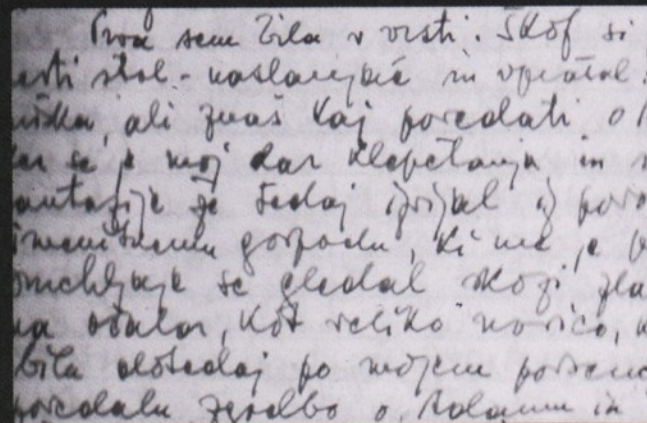 Prva sem bila v vrsti. Škof si
stol - naslanjač in vprašal
ali znaš kaj povedati o
se je moj dar klepetanja in
fantazije že tedaj izvijal iz
imenitnemu gospodu, ki me je
se gledal skozi zla
očalov, kot veliko novico,
bila dotedaj po mojem
povedala zgodbo o Adamu in